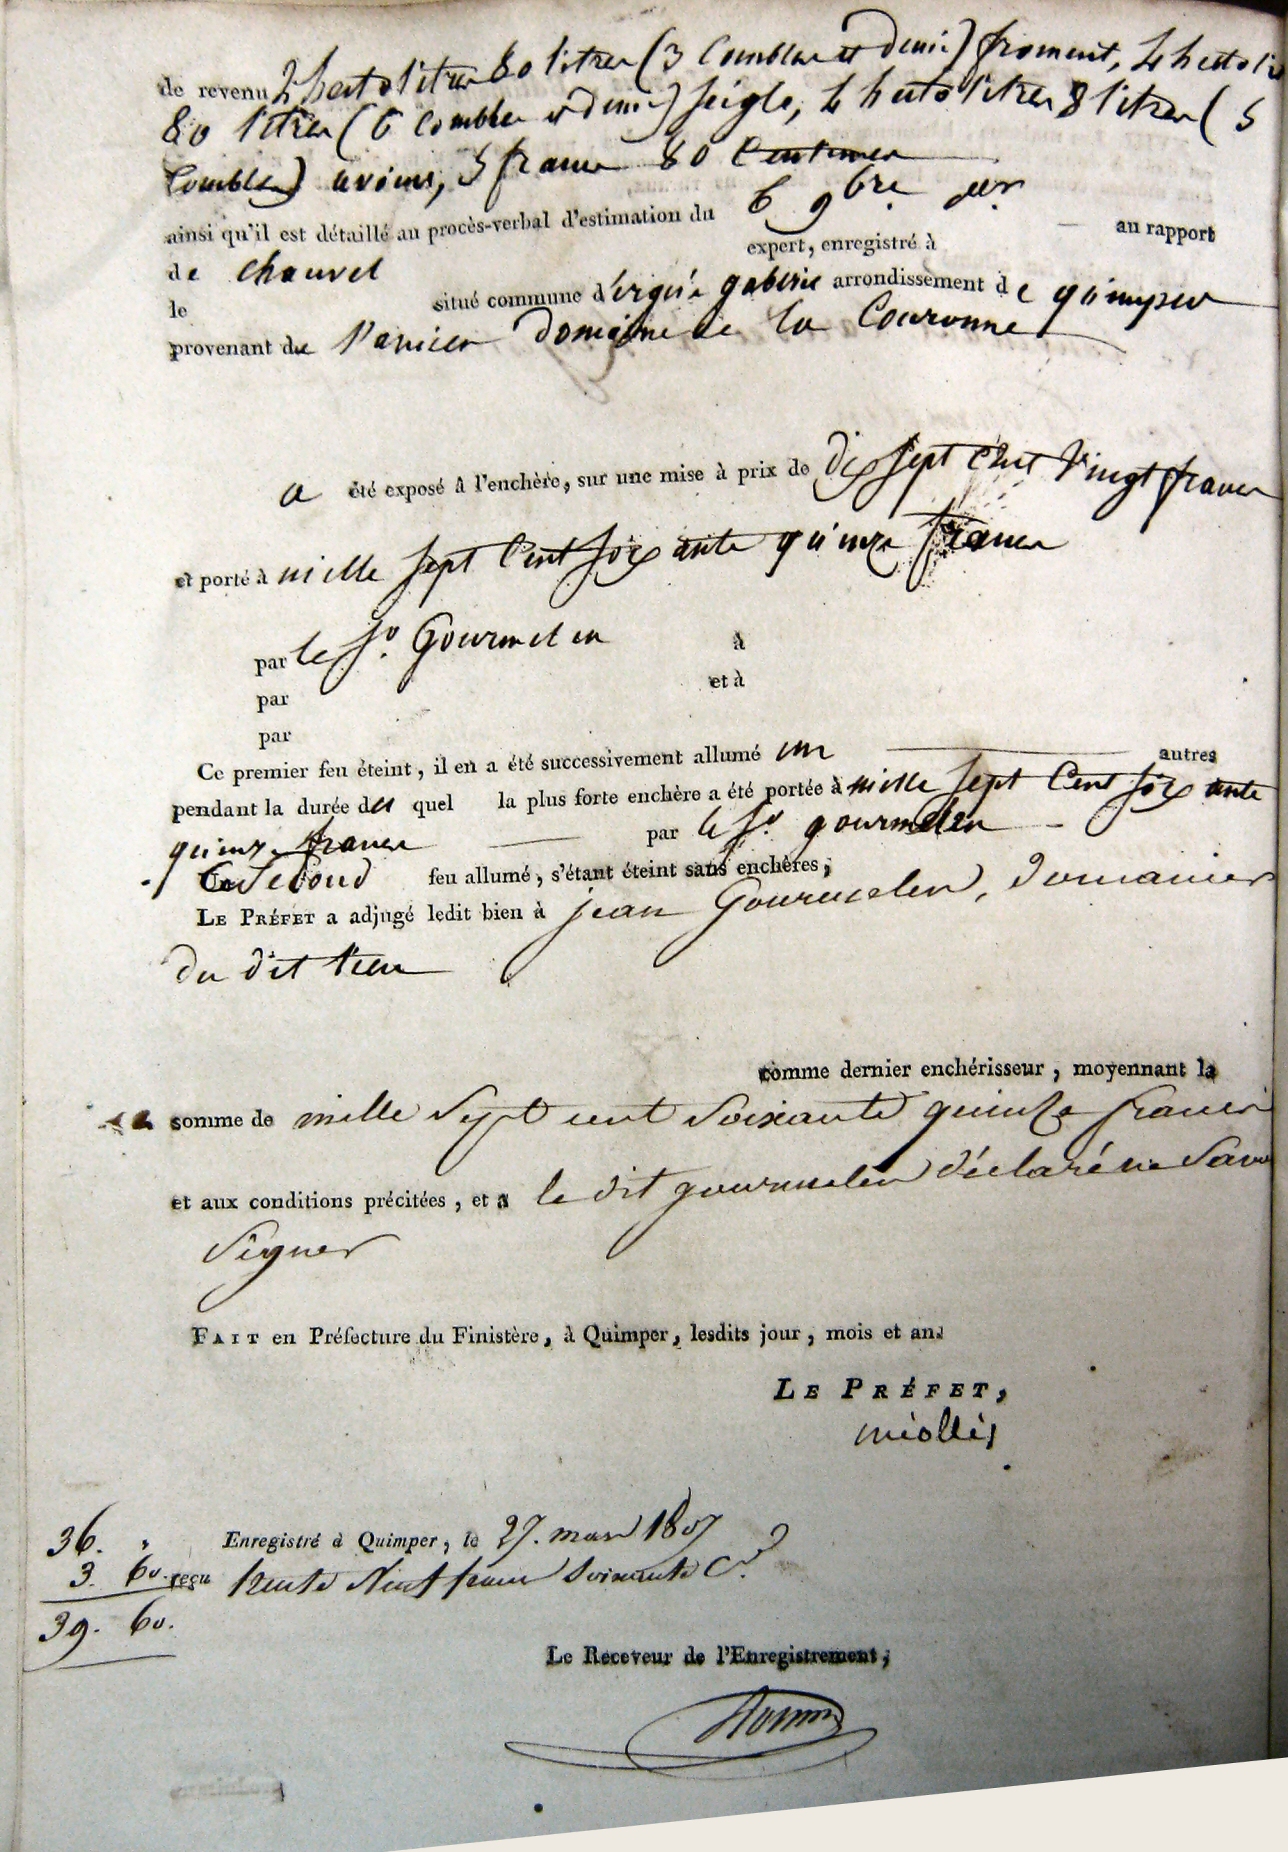 de revenu 2 hectolitres 80 litres (3 Combles et demi) froment, 4 hectolit
80 litres (6 Combles et demi) seigle, 4 hectolitres 8 litres (5
Combles) avoine, 5 francs 80 Centimes
ainsi qu'il est détaillé au procès-verbal d'estimation du 6 9bre dr. au rapport
de chauvel expert, enregistré à
le situé commune d'ergué gaberic arrondissement de quimper
provenant du l'ancien Domaine de la Couronne
a été exposé à l'enchère, sur une mise à prix de Dix sept Cent Vingt francs
et porté à mille sept Cent soixante quinze francs
par le Sr. Gourmelen à
par et à
par
Ce premier feu éteint, il en a été successivement allumé un autres
pendant la durée du quel la plus forte enchère a été portée à mille sept Cent soixante
quinze francs par le Sr. gourmelen
Ce Second feu allumé, s'étant éteint sans enchères,
LE PRÉFET a adjugé ledit bien à jean Gourmelen, Domanier
du dit lieu
comme dernier enchérisseur, moyennant la
somme de mille Sept cent Soixante quinze francs
et aux conditions précitées, et a le dit gourmelen déclaré ne Savoir
Signer
FAIT en Préfecture du Finistère, à Quimper, lesdits jour, mois et an.
LE PRÉFET,
miollis
36. "
Enregistré à Quimper, le 27. mars 1807
3. 60. reçu trente Neuf francs Soixante Cs.
39. 60.
Le Receveur de l'Enregistrement,